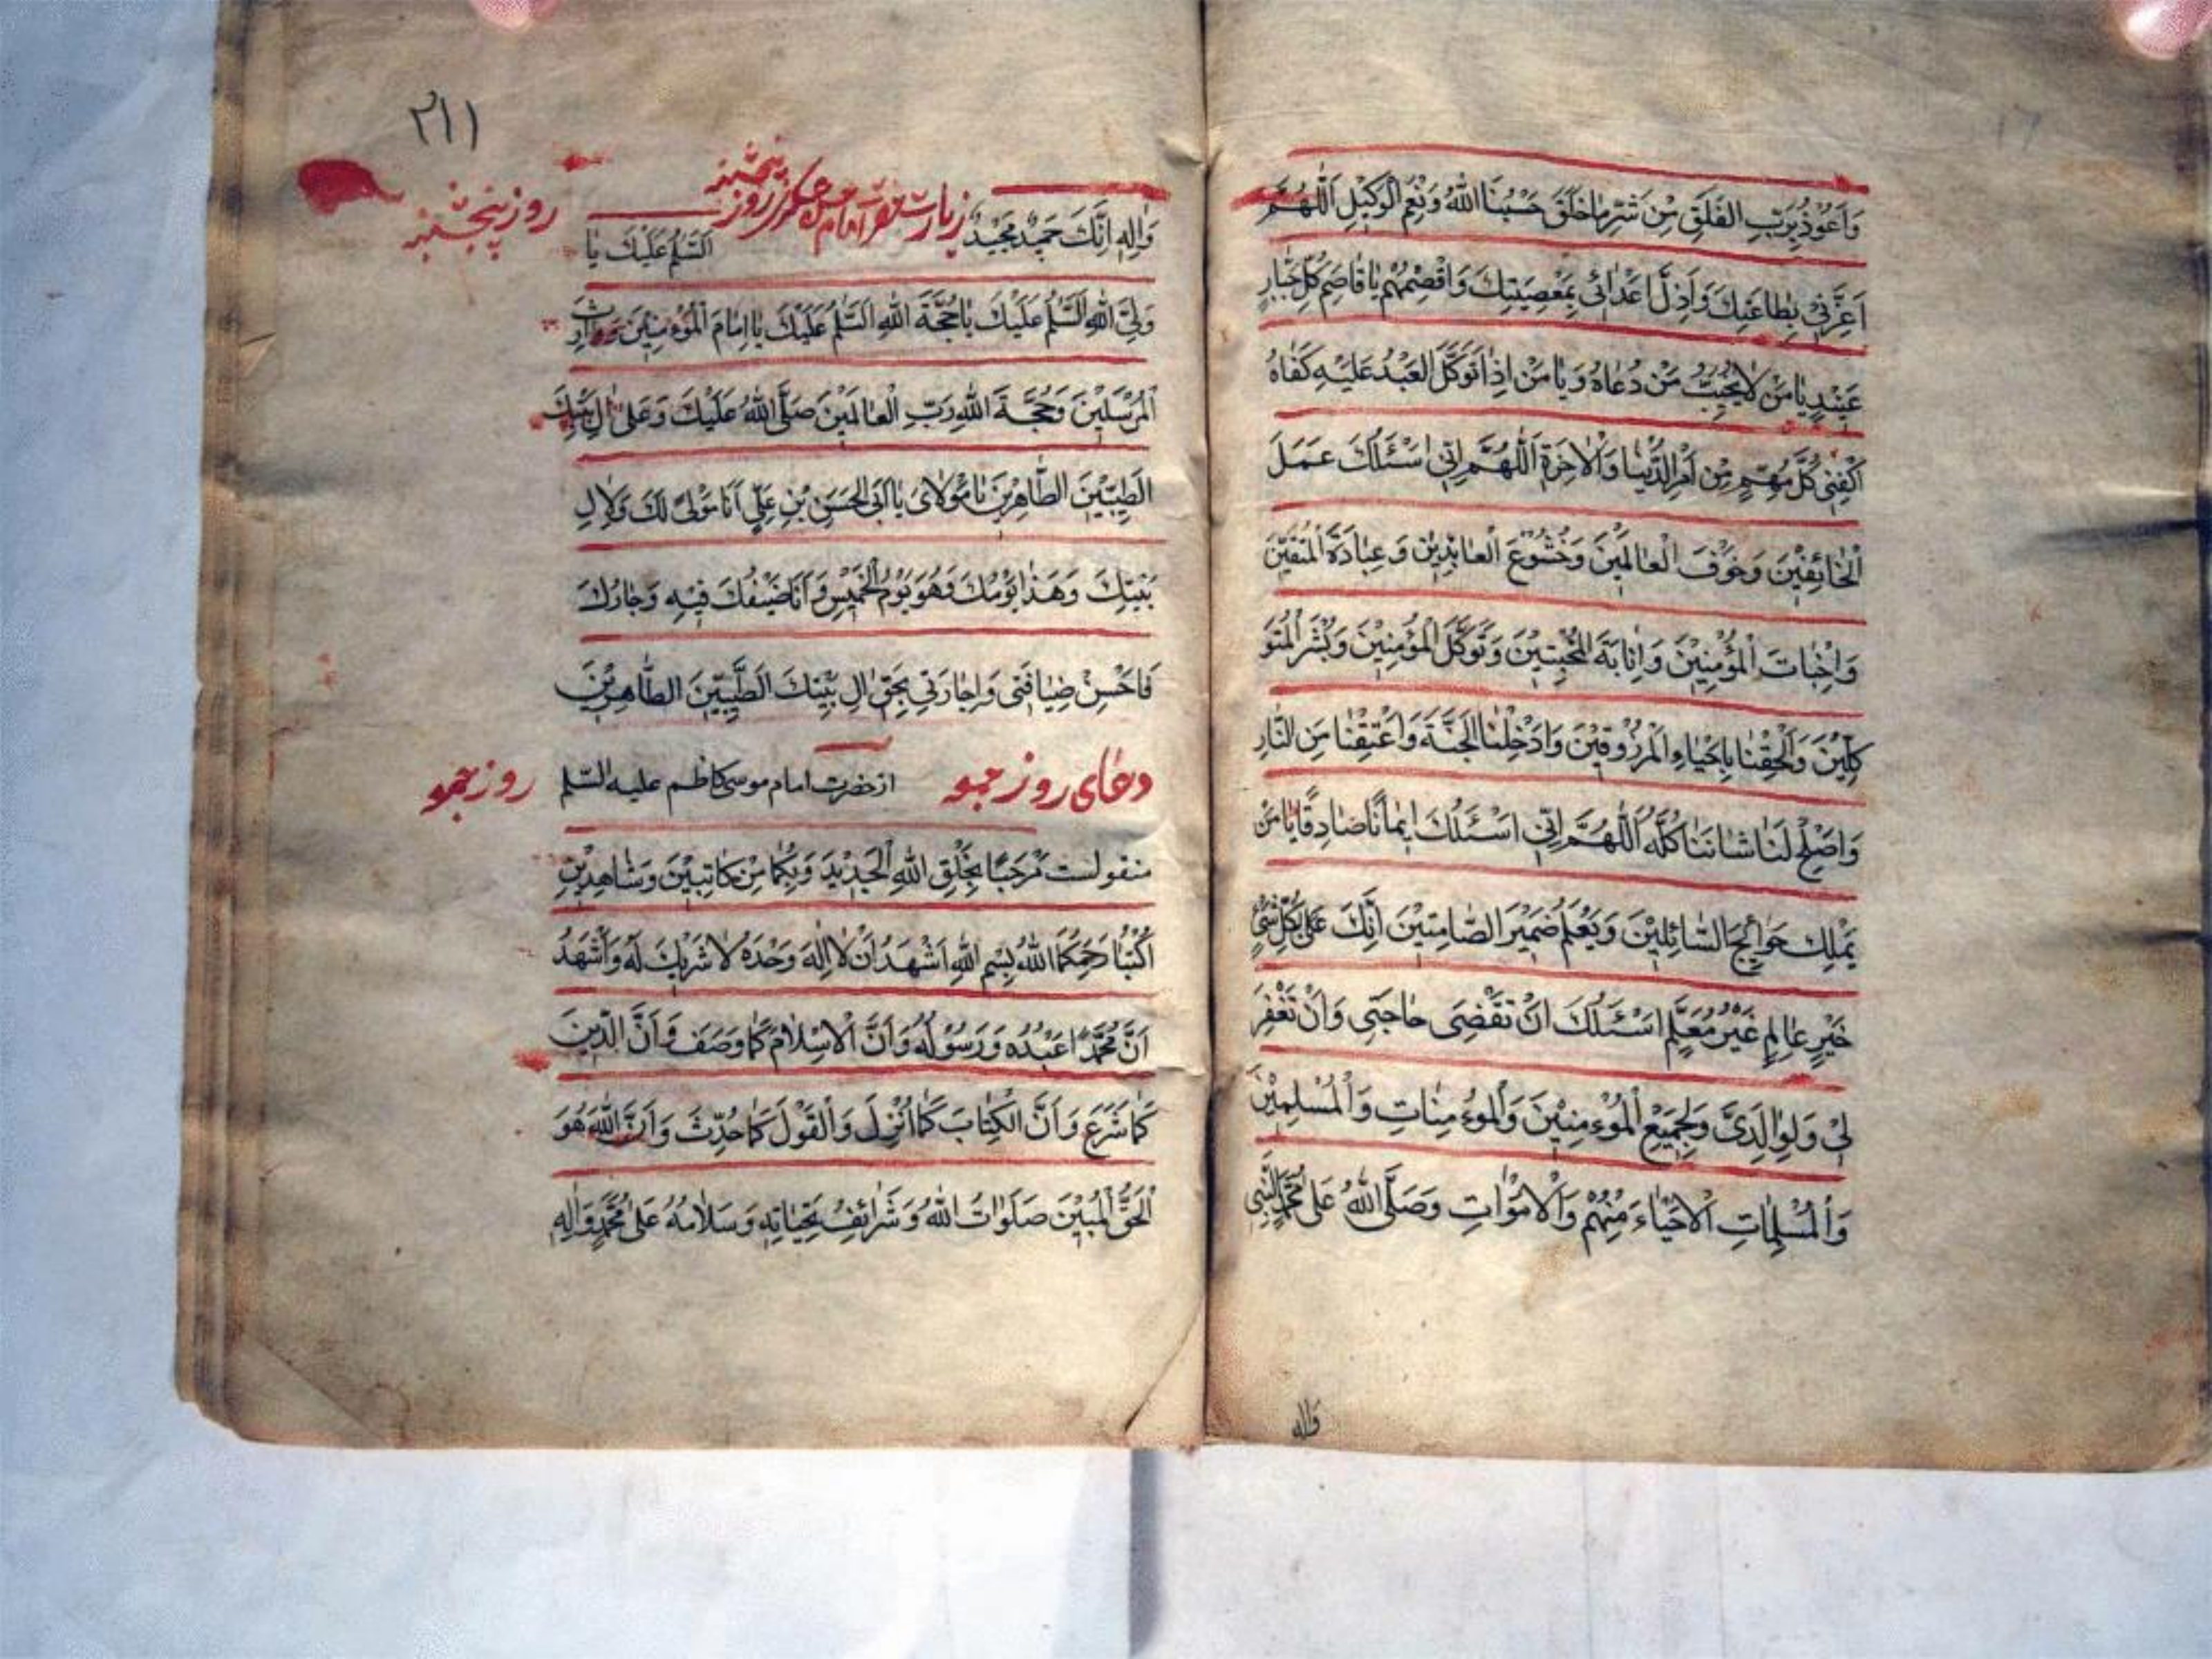 وَاَعُوْذُ بِرَبِّ الفَلَقِ مِنْ شَرِّ مٰا خَلَقَ حَسْبُنَا اللّٰهُ وَنِعْمَ الْوَكِيْلِ اَللّٰهُمَّ
اَعِزَّنِيْ بِطٰاعَتِكَ وَاَذِلَّ اَعْدٰائى بِمَعْصِيَتِكَ وَاقْصِمْهُمْ يٰا قٰاصِمَ كُلِّ جَبّٰارٍ
عَنِيْدٍ يٰا مَنْ لٰا يُجِيْبُ مَنْ دُعٰاهُ وَيٰا مَنْ اِذٰا تَوَكَّلَ العَبْدُ عَلَيْهِ كَفٰاهُ
اكْفِنِىْ كُلَّ مُهِمٍّ مِنْ اَمْرِ الدُّنْيٰا وَالْاٰخِرَةِ اَللّٰهُمَّ اِنّى اَسْئَلُكَ عَمَلَ
الْخٰائِفِيْنَ وَخَوْفَ الْعٰالَمِيْنَ وَخُشُوْعَ الْعٰابِدِيْنَ وَعِبٰادَةَ الْمُتَّقِيْنَ
وَاِخْبٰاتَ الْمُؤْمِنِيْنَ وَاِنٰابَةَ الْمُخْبِتِيْنَ وَتَوَكُّلَ الْمُؤْمِنِيْنَ وَبُشْرَ الْمُتَوَ
كِلّيْنَ وَالْحِقْنٰا بِاَحْيٰاءِ الْمَرْزُوقِيْنَ وَادْخِلْنٰا الْجَنَّةَ وَاعْتِقْنٰا مِنَ النّٰارِ
وَاَصْلِحْ لَنٰا شٰانَنٰا كُلَّهُ اَللّٰهُمَّ اِنّي اَسْئَلُكَ اِيْمٰانًا صٰادِقًا يٰا مَنْ
يَمْلِكُ حَوٰائِجَ السّٰائِلِيْنَ وَيَعْلَمُ ضَمِيْرَ الصّٰامِتِيْنَ اِنَّكَ عَلىٰ بِكُلِّ شَىْءٍ
خَيْرٍ عٰالِمٍ غَيْرُ مُعَلَّمٍ اَسْئَلُكَ اَنْ تَقْضِىَ حٰاجَتِى وَاَنْ تَغْفِرَ
لِىْ وَلِوٰالِدَىَّ وَلِجَمِيْعِ الْمُوْءمِنِيْنَ وَالْموُءمِنٰاتِ وَالْمُسْلِمِيْنَ
وَالْمُسْلِمٰاتِ الْاَحْيٰاءِ مِنْهُمْ وَالْاَمْوٰاتِ وَصَلَّى اللّٰهُ عَلىٰ مُحَمَّدٍ النَّبِىِّ
وَاٰلِهِ
٢١١
روز پنجشنبه
وَاٰلِهِ اِنَّكَ حَمِيْدٌ مَجِيْدٌ زيارت حضرت امام حسن عسكرى روز پنجشنبه اَلسَّلٰمُ عَلَيْكَ يٰا
وَلِىَّ اللّٰهِ اَلسَّلٰمُ عَلَيْكَ يٰا حُجَّةَ اللّٰهِ اَلسَّلٰمُ عَلَيْكَ يٰا اِمٰامَ الْمُوْءمِنِيْنَ وَوٰارِثَ
الْمُرْسَلِيْنَ وَحُجَّةَ اللّٰهِ رَبِّ الْعٰالَمِيْنَ صَلَّى اللّٰهُ عَلَيْكَ وَعَلىٰ اٰلِ بَيْتِكَ
الطَّيِّبِيْنَ الطّٰاهِرِيْنَ يٰا مَوْلٰاىَ يٰا اَبَى الْحَسَنِ بْنِ عَلِىٍّ اَنَا مَوْلىً لَكَ وَلِاٰلِ
بَيْتِكَ وَهَذٰا يَوْمُكَ وَهُوَ يَوْمُ الْخَمِيْسِ وَاَنَا ضَيْفُكَ فِيْهِ وَجٰارُكَ
فَاَحْسِنْ ضِيٰافَتى وَاِجٰارَتِي بِحَقِّ اٰلِ بَيْتِكَ الطَّيِّبِيْنَ الطّٰاهِرِيْنَ
دعٰاى روز جمعه از حضرت امام موسى كاظم عليه السّلٰم روز جمعه
منقولست مَرْحَبًا بِخَلْقِ اللّٰهِ الْجَدِيْدِ وَبِكُمٰا مِنْ كٰاتِبَيْنَ وَشٰاهِدِيْنِ
اُكْتُبٰا رَحِمَكُمَا اللّٰهُ بِسْمِ اللّٰهِ اَشْهَدُ اَنْ لٰا اِلٰهَ وَحْدَهُ لٰا شَرِيْكَ لَهُ وَاَشْهَدُ
اَنَّ مُحَمَّدًا عَبْدُهُ وَرَسُوْلُهُ وَاَنَّ الْاِسْلٰامَ كَمٰا وَصَفَ وَاَنَّ الدِّيْنَ
كَمٰا شَرَعَ وَاَنَّ الْكِتٰابَ كَمٰا اُنْزِلَ وَالْقَوْلَ كَمٰا حُدِّثَ وَاَنَّ اللّٰهَ هُوَ
الْحَقُّ الْمُبِيْنَ صَلَوٰاتُ اللّٰهِ وَشَرٰائِفُ تَحِيّٰاتِهِ وَسَلٰامُهُ عَلىٰ مُحَمَّدٍ وَاٰلِهِ